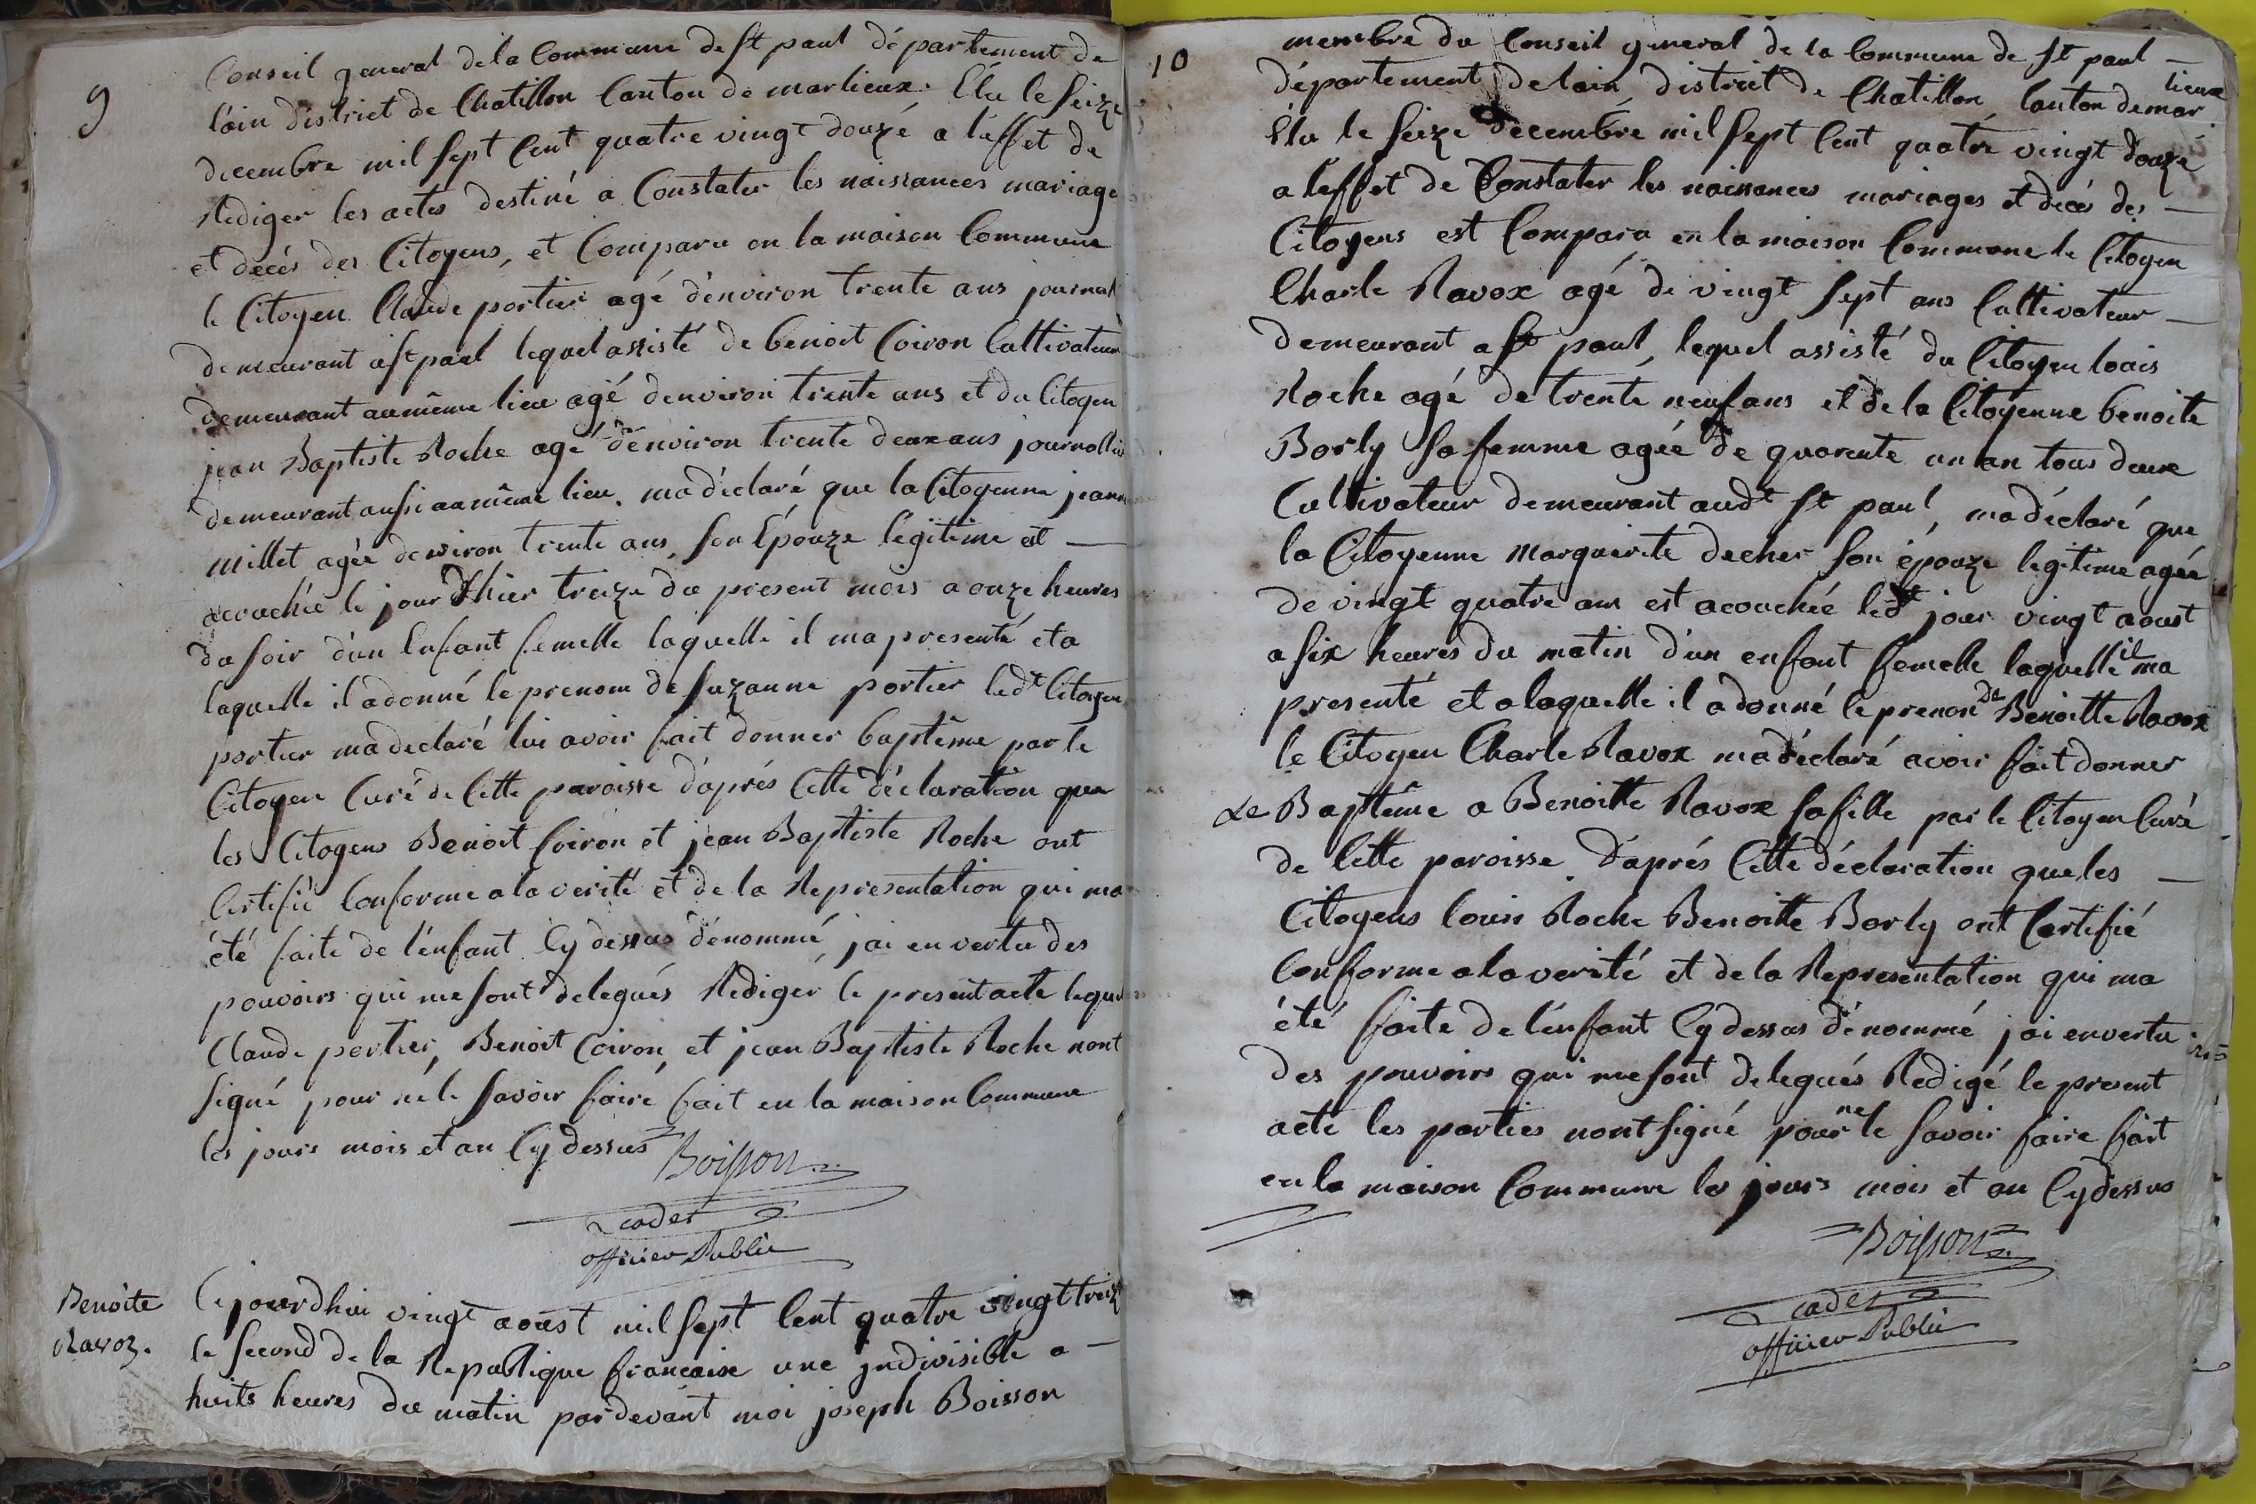 9
Conseil general de la Commune de St paul département de
l'ain district de Chatillon Canton de marlieux. Elu le Seize
decembre mil sept Cent quatre vingt douzé a l'effet de
Rediger les actes destiné a Constater les naissances mariage
et decés des Citoyens, et Comparu en la maison Commune
le Citoyen Claude portier agé d'environ trente ans journal
demeurant a St paul lequel assisté de benoit Coiron Cultivateur
demeurant au même lieu agé denviron trente ans et du Citoyen
jean Baptiste Roche agé d'environ trente deux ans journallier
demeurant aussi au même lieu. ma déclaré que la Citoyenne jeann
Millet agée denviron trente ans, son Épouze légitime est —
acouchée le jour d'hier treize du present mois a onze heures
du soir d'un Enfant femelle laquelle il ma presenté et a
laquelle il a donné le prenom de Suzanne portier ledt Citoyen
portier ma declaré lui avoir fait donner baptême par le
Citoyen Curé de Cette paroisse d'aprés Cette déclaration que
les Citoyens Benoit Coiron et jean Baptiste Roche ont
Certifié Conforme a la verité et de la Representation qui ma
été faite de l'énfant Cy dessus dénommé, jai en vertu des
pouvoirs qui me sont delegués Rediger le present acte lequel
Claude portier, Benoit Coiron, et jean Baptiste Roche nont
signé pour né le savoir fairé, fait en la maison Commune
les jours mois et an Cy dessus Boisson
cadet
officier Public
Benoite
Ravoz.
Cejourdhui vingt aoust mil sept Cent quatre vingt treiz
le second de la Republique francaise une jndivisible a —
huits heures du matin pardevant moi joseph Boisson
10
membre du Conseil general de la Commune de St paul —
département de lain district de Chatillon, Canton de mar
lieux
Elu le Seize decembre mil sept Cent quatre vingt douze
a leffet de Constater les naissances mariages et decés des —
Citoyens est Comparu en la maison Commune le Citoyen
Charle Ravox agé de vingt sept ans Cultivateur —
demeurant a St paul, lequel assisté du Citoyen louis
Roche agé de trente neuf ans et de la Citoyenne benoite
Borly sa femme agée de quarente un an tous deux
Cultivateur demeurant audt St paul, ma déclaré que
la Citoyenne Marguerite decher son épouze legitime agée
de vingt quatre ans est acouchée ledt jour vingt aoust
a six heures du matin d'un enfant femelle laquelle il ma
presenté et a laquelle il a donné le prenon de Benoitte Ravox
le Citoyen Charle Ravox ma déclaré avoir fait donner
Le Baptême a Benoitte Ravox sa fille par le Citoyen Curé
de Cette paroisse. d'aprés Cette déclaration que les —
Citoyens louis Roche Benoitte Borly ont Certifié
Conforme a la verité et de la Representation qui ma
été faite de l'énfant Cy dessus dénommé jai en vertu
des pouvoirs qui me sont delegués Redigé le present
acte les parties nont signé pour ne le savoir faire fait
en la maison Commune les jours mois et an Cydessus
Boisson
cadet
officier Public